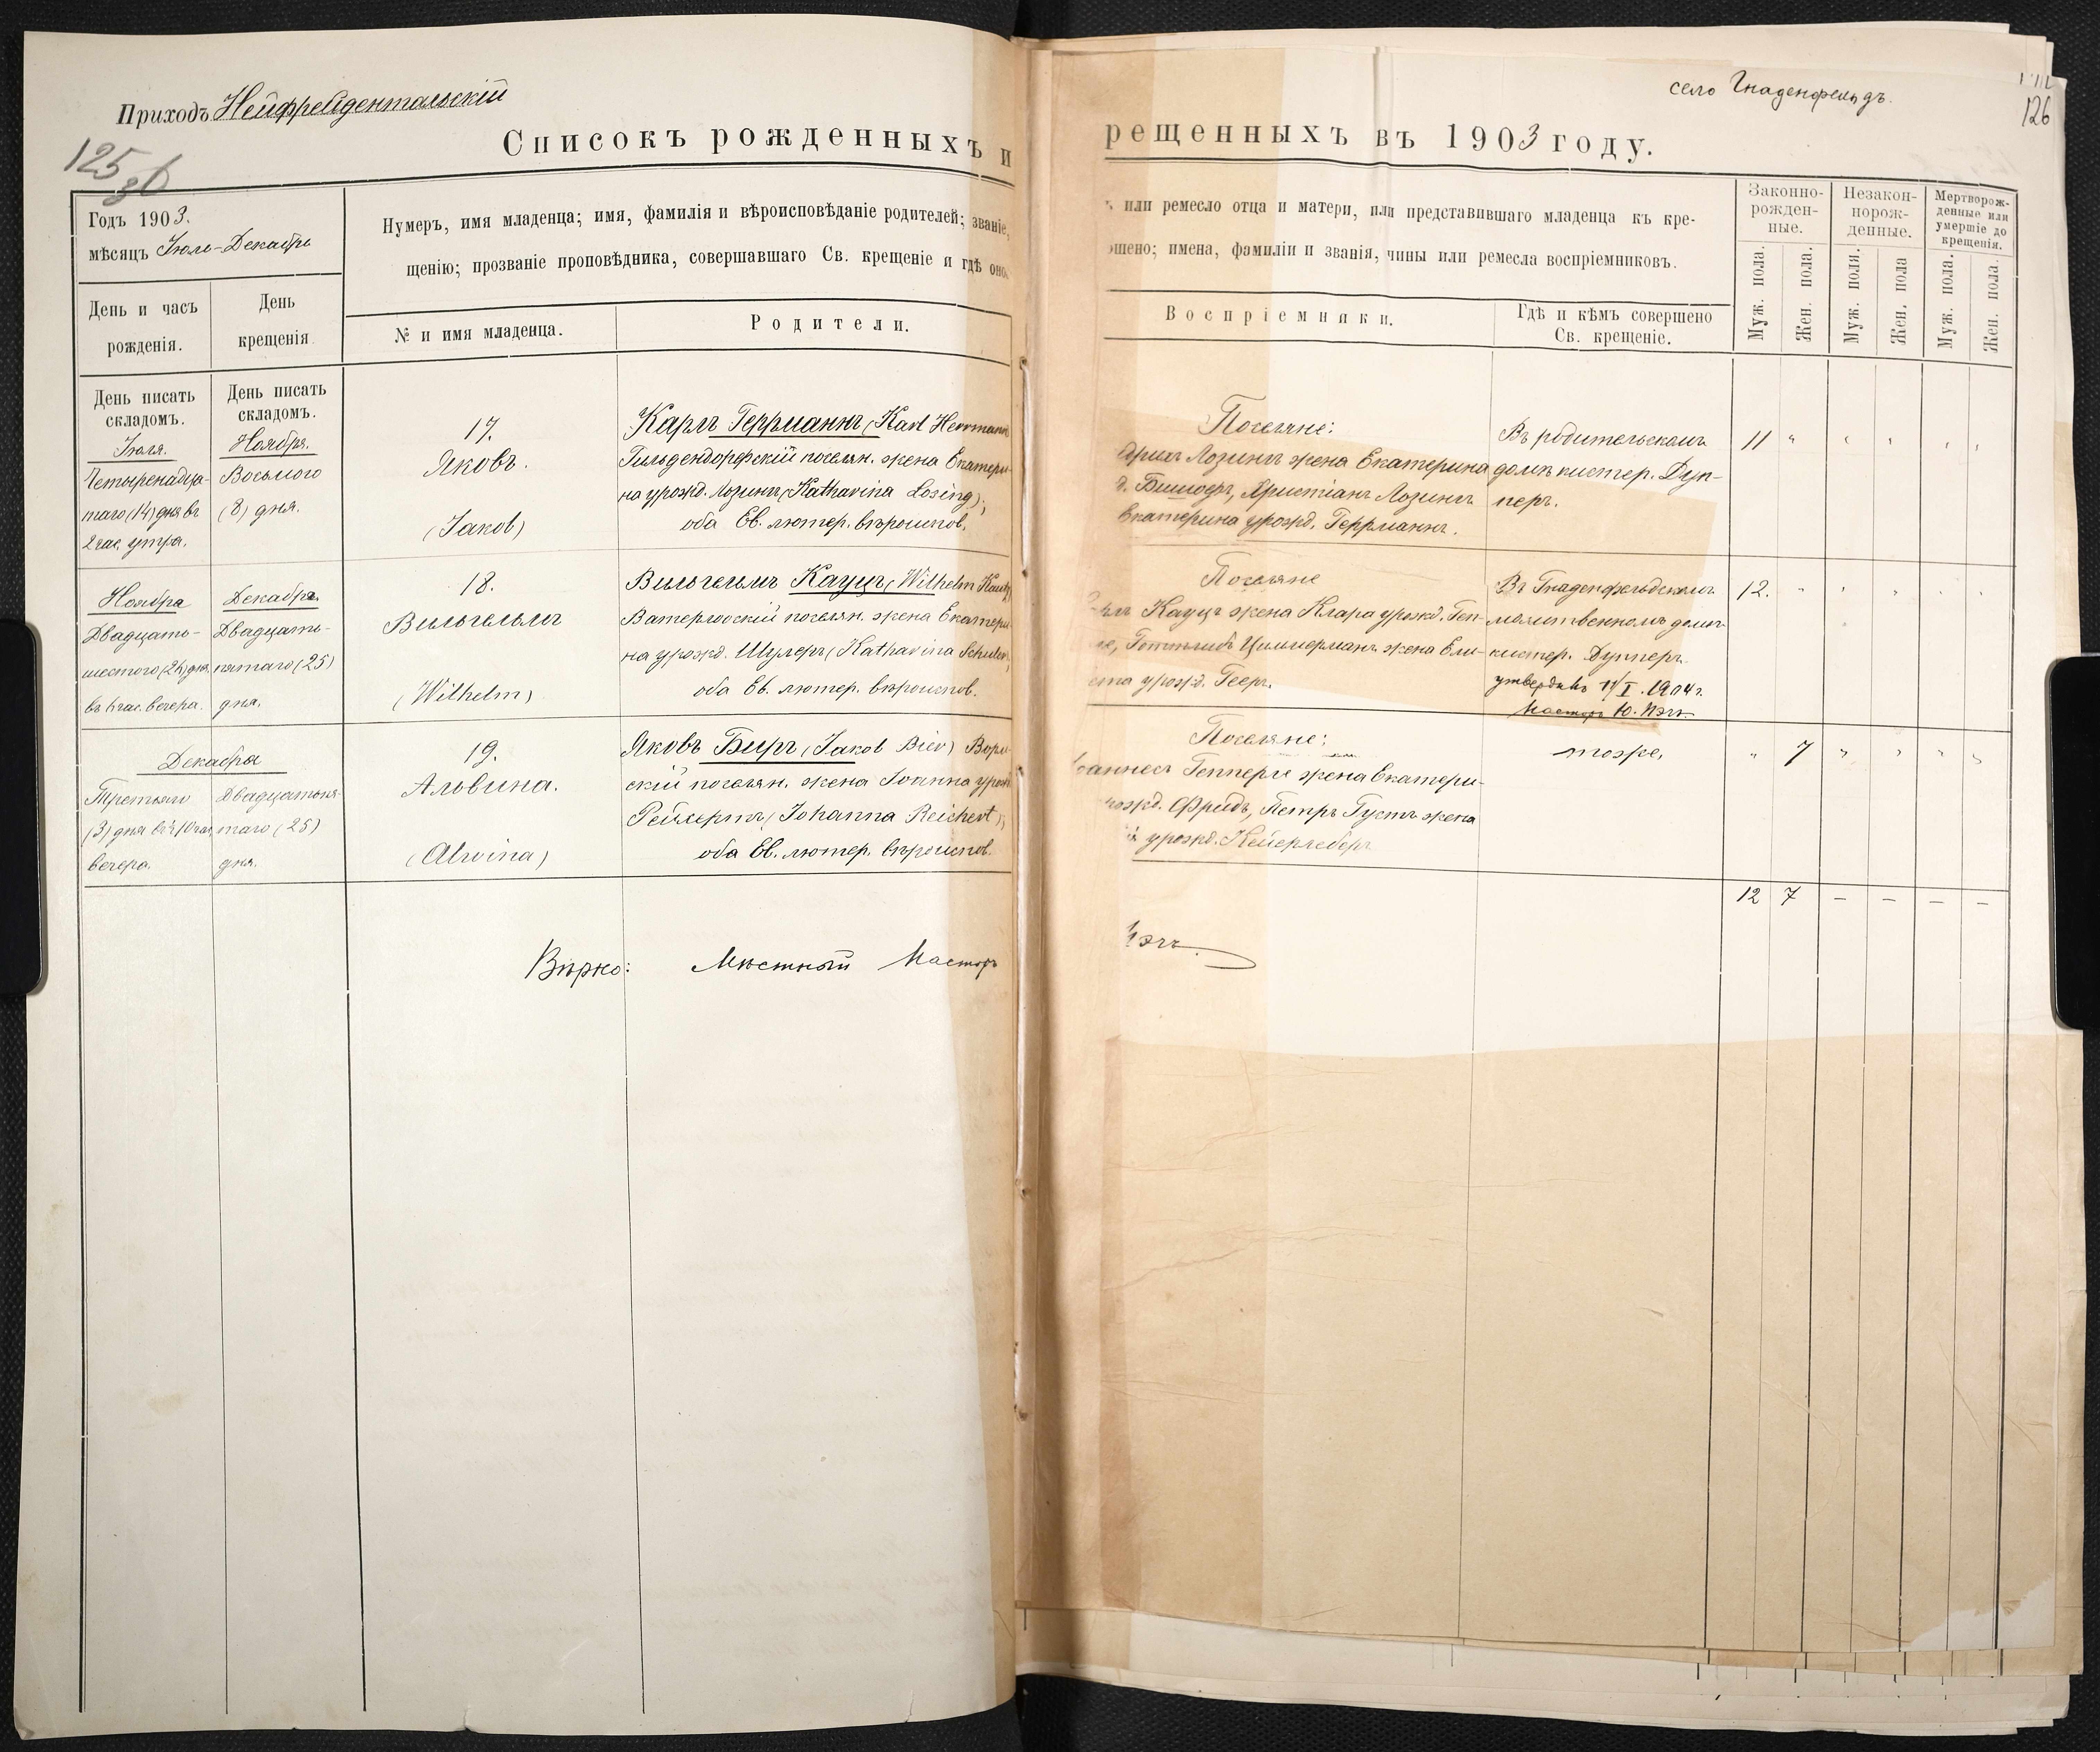 Приходъ Нейфрейдентальскій
125 об
Списокъ рожденныхъ и
Годъ 1903.
мѣсяцъ Іюль-Декабрь
Нумеръ, имя младенца; имя, фамилія и вѣроисповѣданіе родителей; званіе,
щенію; прозваніе проповѣдника, совершавшаго Св. крещеніе и гдѣ оно
День и часъ
рожденія.
День
крещенія
№ и имя младенца.
Родители.
День писать
складомъ.
День писать
складомъ.
Іюля.
Четыренадца-
таго (14) дня въ
2 час. утра.
Ноября.
Восьмого
(8) дня.
17.
Яковъ.
(Jakob)
Карлъ Геррманнъ (Karl Herrmann
Гильдендорфскій поселян. жена Екатери-
на урожд. Лозингъ (Katharina Losing),
оба Ев. лютер. вѣроиспов.
Ноября
Двадцать-
шестого (26) дня
въ 6 час. вечера.
Декабря
Двадцать-
пятаго (25)
дня.
18.
Вильгельмъ
(Wilhelm)
Вильгельмъ Кауцъ (Wilhelm Kautz
Ватерлооскій поселян. жена Екатери-
на урожд. Шулеръ (Katharina Schuler,
оба Ев. лютер. вѣроиспов.
Декабря
Третьяго
(3) дня въ 10 час
вечера.
Двадцатьпя-
таго (25)
дня.
19.
Альвина.
(Alwina)
Яковъ Биръ (Jakob Bier) Ворм-
скій поселян. жена Іоанна урожд
Рейхертъ (Johanna Reichert),
оба Ев. лютер. вѣроиспов.
Вѣрно: Мѣстный Пасторъ
село Гнаденфельдъ.
126
рещенныхъ въ 1903 году.
или ремесло отца и матери, или представившаго младенца къ кре-
ршено; имена, фамиліи и званія, чины или ремесла воспріемниковъ.
Воспріемники.
Гдѣ и кѣмъ совершено
Св. крещеніе.
Законно-
рожден-
ные.
Незакон-
норож-
денные.
Мертворож-
денные или
умершіе до
крещенія.
Муж. пола.
Жен. пола.
Муж. пола.
Жен. пола
Муж. пола.
Жен. пола.
Поселяне:
Лозингъ жена Екатерина
д. Бишофъ, Христіанъ Лозингъ
Екатерина урожд. Геррманнъ.
Въ родительскомъ
домѣ кистер. Дуп-
перъ.
11 "
Поселяне
Кауцъ жена Клара урожд. Геп-
Готтлибъ Циммерманъ жена Ели-
урожд. Гееръ.
Въ Гнаденфельдскомъ
молитвенномъ домѣ
кистер. Дупперъ.
утвердилъ 11/I. 1904 г.
Пасторъ Ю. Пэчъ
12. "
Поселяне:
Іоаннесъ Гепперле жена Екатери-
урожд. Фридъ, Петръ Густъ жена
урожд. Нейергеберъ
тоже.
" 7 " " " "
12 7 – – – –
Пэчъ